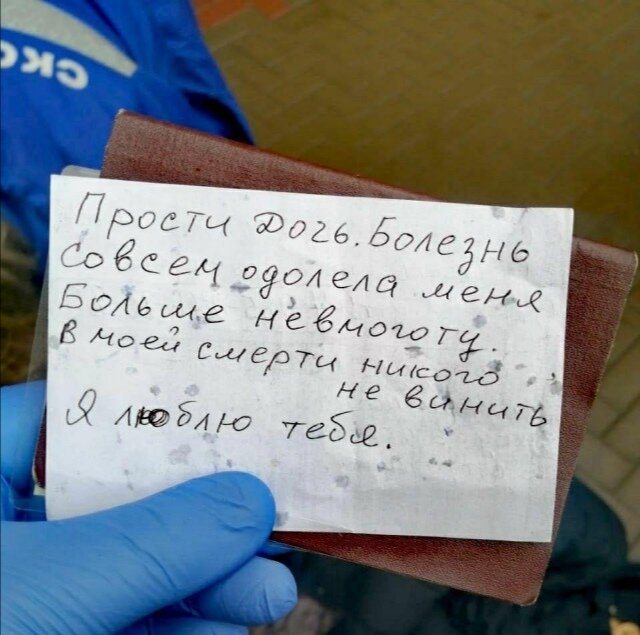 СКО
Прости Дочь. Болезнь
совсем одолела меня
Больше невмоготу.
В моей смерти никого
не винить
Я люблю тебя.